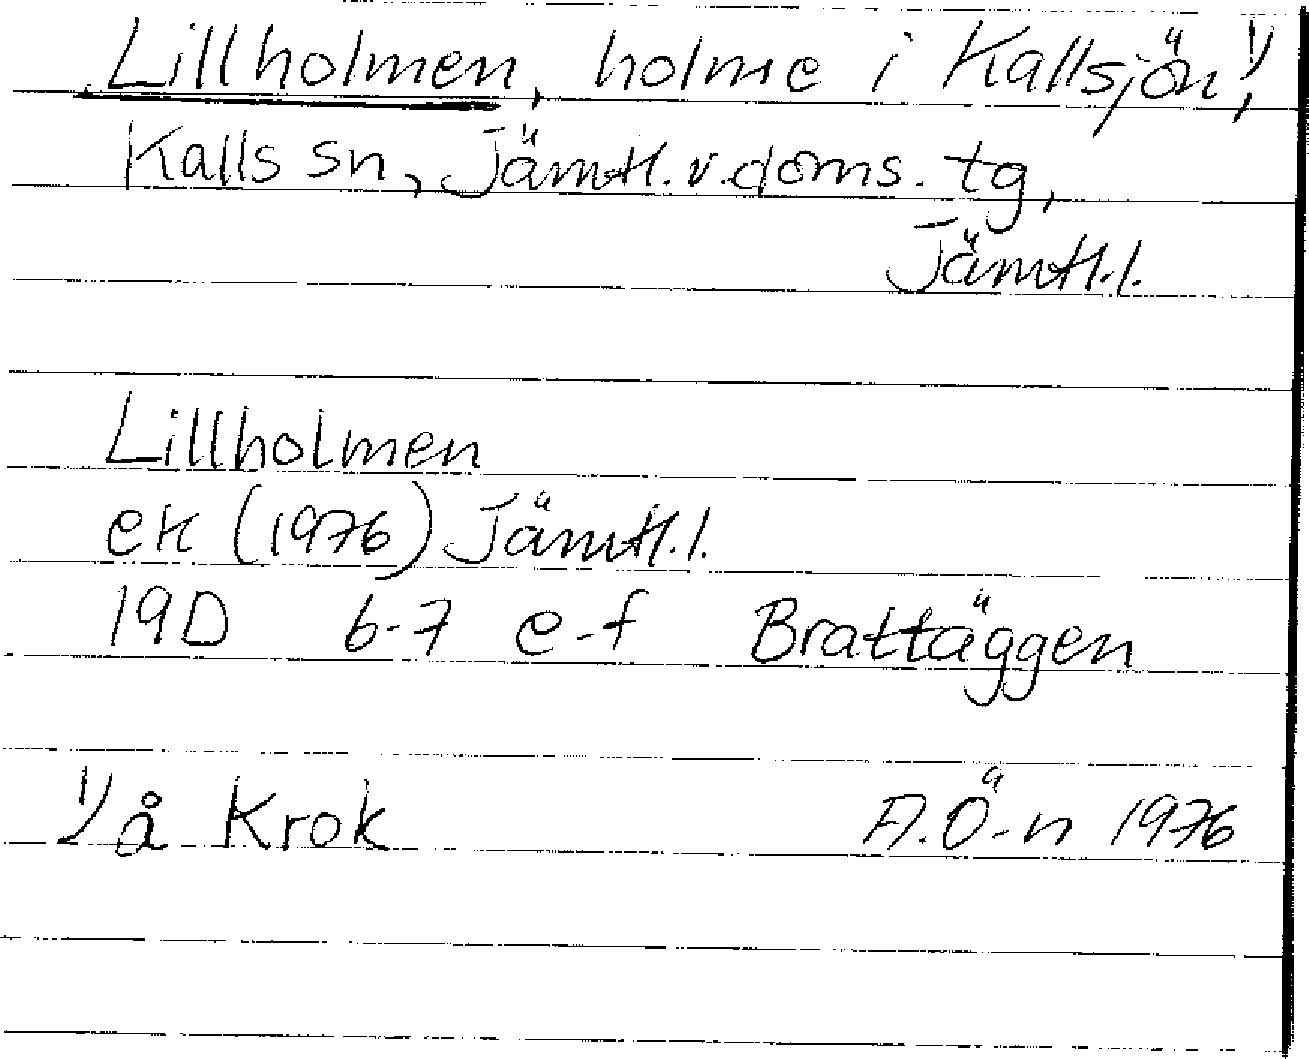 Lillholmen, holme i Kallsjön,¹⁾
Kalls sn, Jämtl.v.doms. tg,
Jämtl.l.
Lillholmen
ek (1976) Jämtl.l.
19D 6-7 e-f Brattäggen
¹⁾ å Krok A.Ö-n 1976